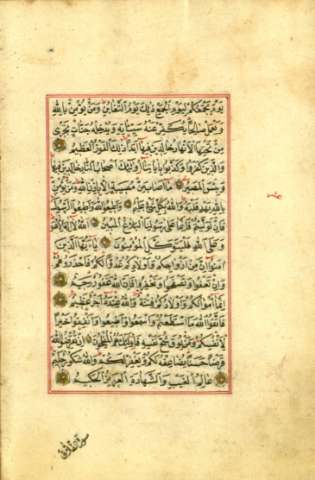 يوم يجمعكم ليوم الجمع ذلك يوم التغابن ومن يؤمن بالله
ويعمل صالحا يكفر عنه سيئاته ويدخله جنات تجرى
من تحتها الانهار خالدين فيها ابدا ذلك الفوز العظيم
والذين كفروا وكذبوا باياتنا اولئك اصحاب النار خالدين فيها
وبئس المصير ما اصاب من مصيبة الا باذن الله ومن يؤمن
بالله يهد قلبه والله بكل شئ عليم واطيعوا الله واطيعوا الرسول
فان توليتم فانما على رسولنا البلاغ المبين الله لا اله الا هو
وعلى الله فليتوكل المؤمنون يا ايها الذين
امنوا ان من ازواجكم واولادكم عدوا لكم فاحذروهم
وان تعفوا وتصفحوا وتغفروا فان الله غفور رحيم
انما اموالكم واولادكم فتنة والله عنده اجر عظيم
فاتقوا الله ما استطعتم واسمعوا واطيعوا وانفقوا خيرا
لانفسكم ومن يوق شح نفسه فاولئك هم المفلحون ان تقرضوا الله
قرضا حسنا يضاعفه لكم ويغفر لكم والله شكور حليم
عالم الغيب والشهادة العزيز الحكيم